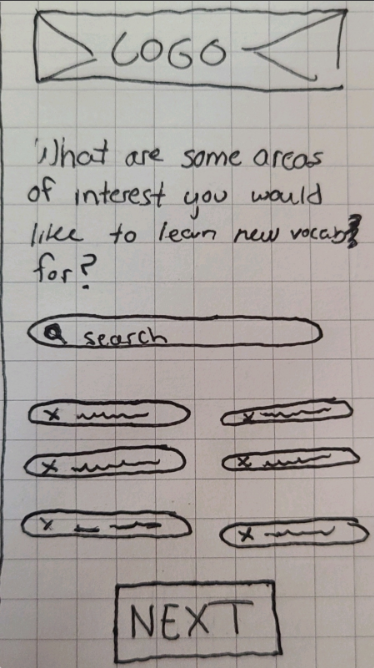 LOGO
What are some areas
of interest you would
like to learn new vocab
for?
search
x
x
x
x
x
x
NEXT